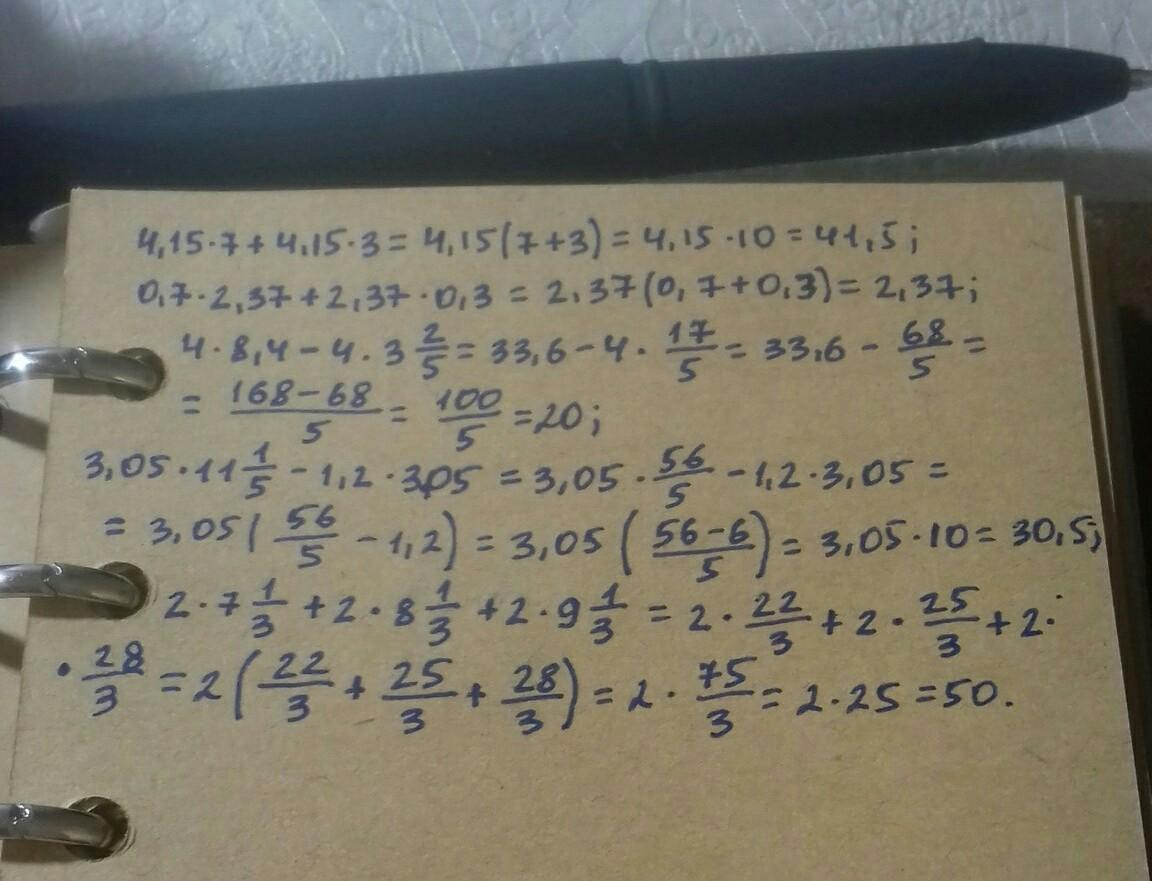 4,15·7+4,15·3=4,15(7+3)=4,15·10=41,5;
0,7·2,37+2,37·0,3=2,37(0,7+0,3)=2,37;
4·8,4-4·3 2/5=33,6-4·17/5=33,6-68/5=
=(168-68)/5=100/5=20;
3,05·11 1/5-1,2·3,05=3,05·56/5-1,2·3,05=
=3,05(56/5-1,2)=3,05((56-6)/5)=3,05·10=30,5;
2·7 1/3+2·8 1/3+2·9 1/3=2·22/3+2·25/3+2·
·28/3=2(22/3+25/3+28/3)=2·75/3=2·25=50.